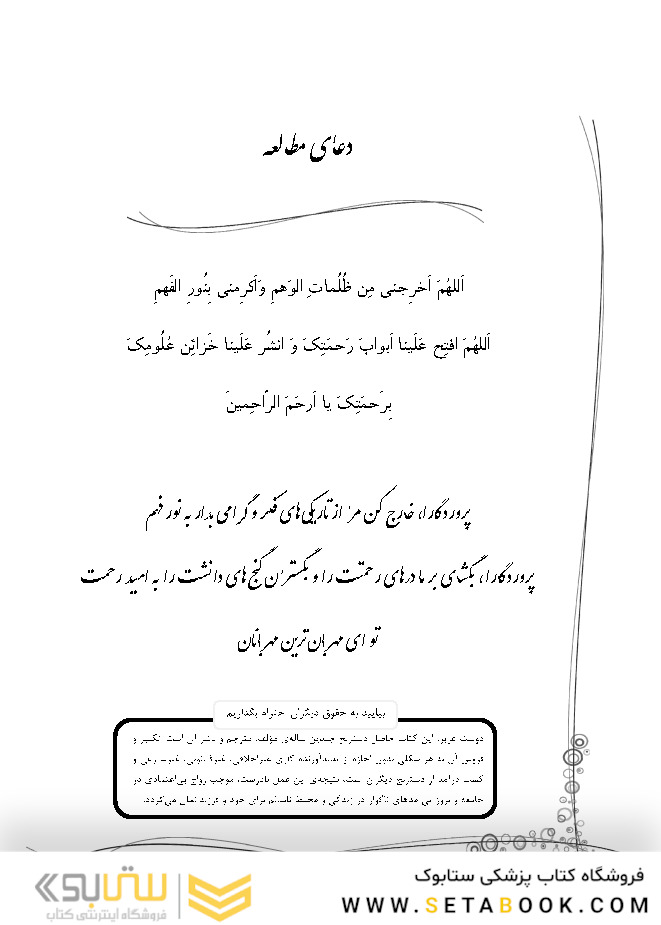 دعای مطالعه
اَللهُمَ اَخرِجنی مِن ظُلُماتِ الوَهمِ وَاَکرِمنی بِنُورِ الفَهمِ
اَللهُمَ افتِح عَلَینا اَبوابَ رَحمَتِکَ وَ انشُر عَلَینا خَزائِن عُلُومِکَ
بِرَحمَتِکَ یا اَرحَمَ الرّاحِمینَ
پروردگارا، خارج کن مرا از تاریکی‌های فکر و گرامی بدار به نور فهم
پروردگارا، بگشای بر ما درهای رحمتت را و بگستران گنج‌های دانشت را به امید رحمت
تو ای مهربان‌ترین مهربانان
بیایید به حقوق دیگران احترام بگذاریم
دوست عزیز، این کتاب حاصل دسترنج چندین ساله‌ی مؤلف، مترجم و ناشر آن است. تکثیر و
فروش آن به هر شکلی بدون اجازه از پدیدآورنده کاری غیراخلاقی، غیرقانونی، غیرشرعی و
کسب درآمد از دسترنج دیگران است. نتیجه‌ی این عمل نادرست، موجب رواج بی‌اعتمادی در
جامعه و بروز پی‌آمدهای ناگوار در زندگی و محیط ناسالم برای خود و فرزندانمان می‌گردد.
فروشگاه کتاب پزشکی ستابوک
WWW.SETABOOK.COM
ستابوک
فروشگاه اینترنتی کتاب